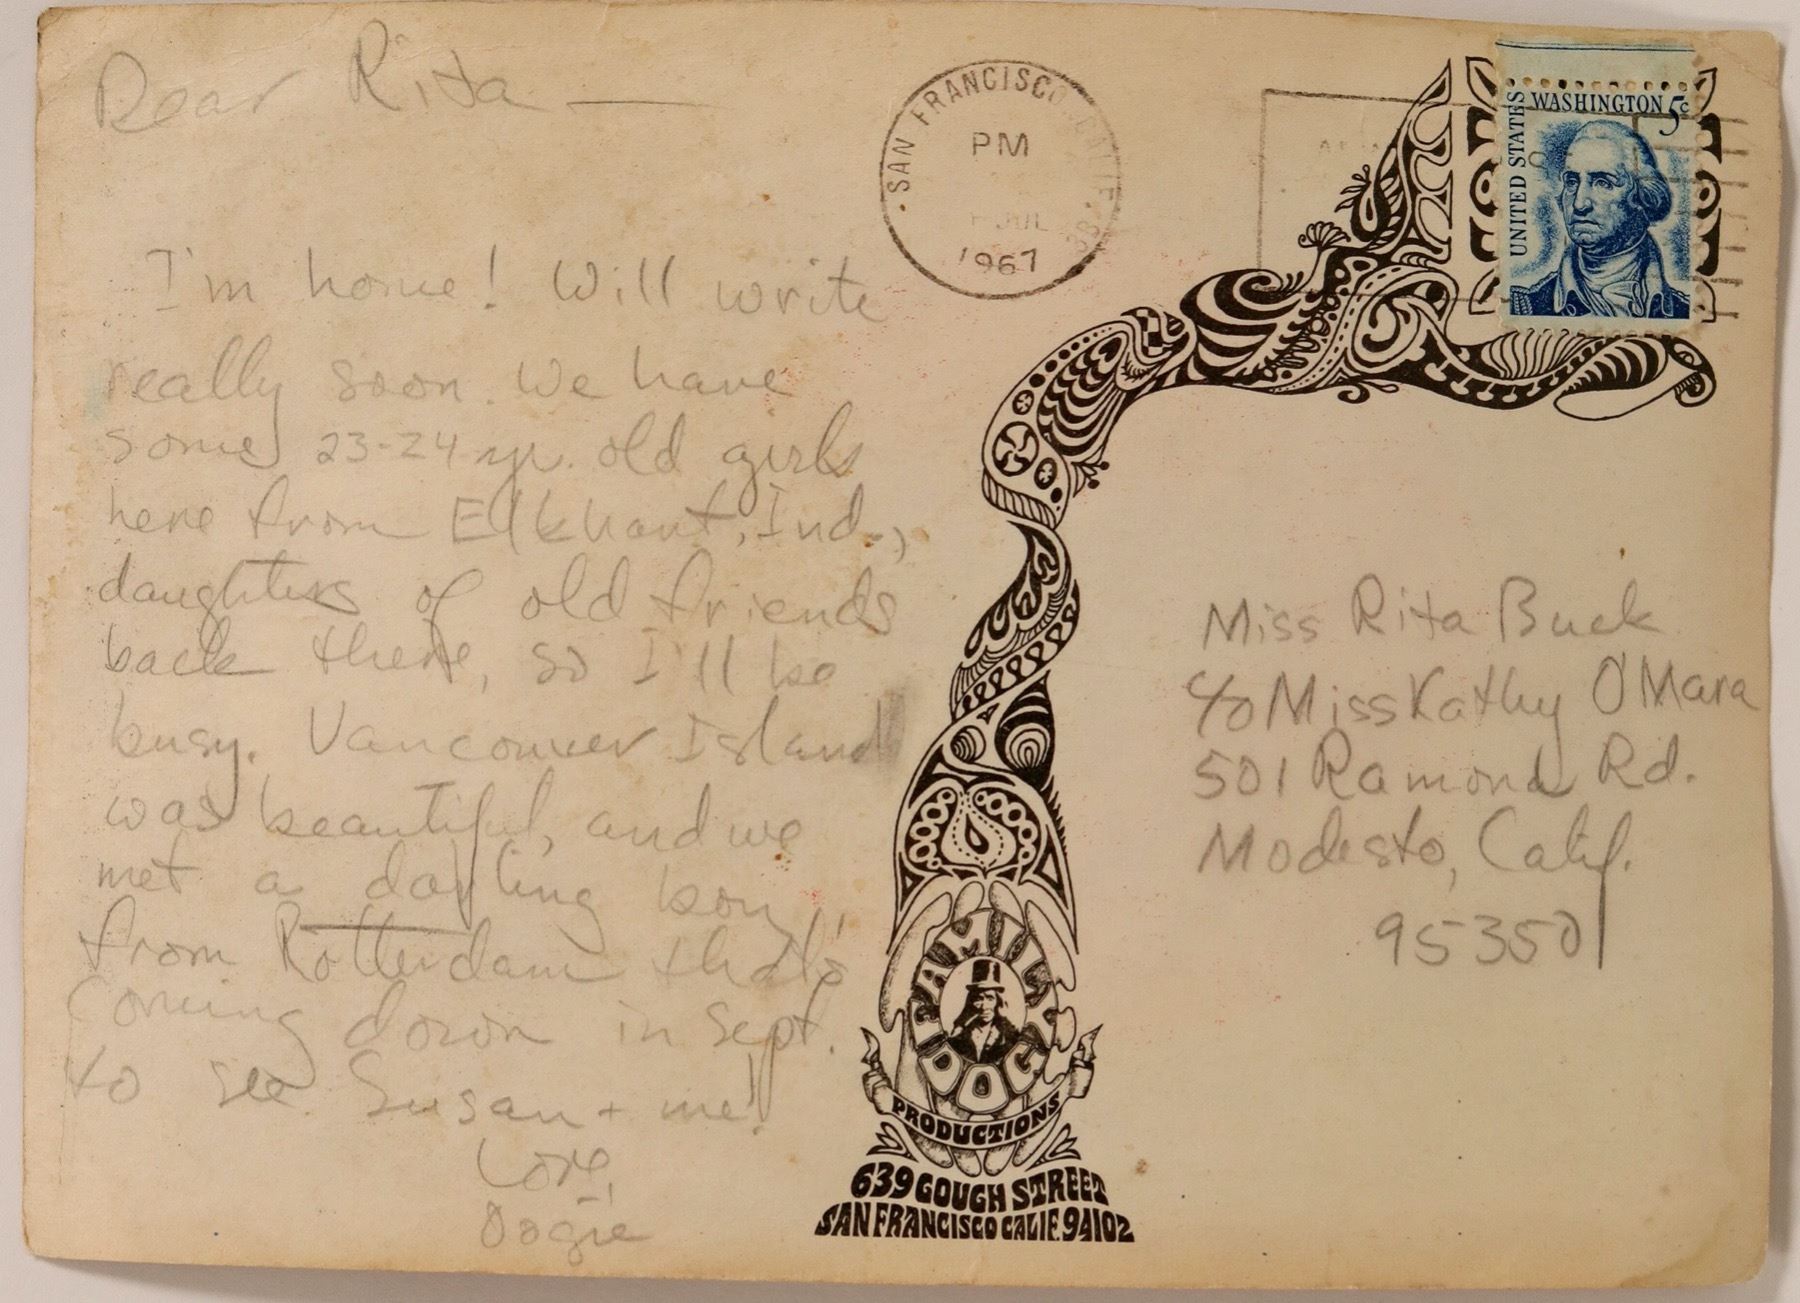 Dear Rita —
I'm home! Will write
really soon. We have
some 23-24 yr. old girls
here from Elkhart, Ind.,
daughters of old friends
back there, so I'll be
busy. Vancouver Island
was beautiful, and we
met a darling boy
from Rotterdam that's
coming down in Sept.
to see Susan + me!
Love,
Oogie
SAN FRANCISCO, CALIF.
PM
JUL
1967
UNITED STATES
WASHINGTON 5¢
Miss Rita Buck
c/o Miss Kathy O'Mara
501 Ramona Rd.
Modesto, Calif.
95350
FAMILY
DOG
PRODUCTIONS
639 GOUGH STREET
SAN FRANCISCO CALIF. 94102